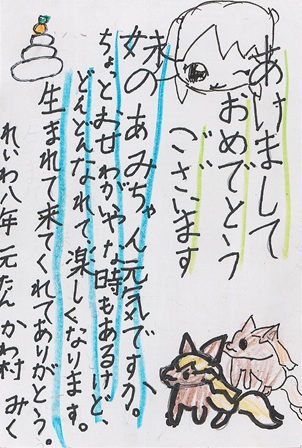 あけまして
おめでとう
ございます
妹のあみちゃん元気ですか。
ちょっとおせわがやな時もあるけど、
どんどんなれて、楽しくなります。
生まれて来てくれてありがとう。
れいわ八年 元たん かわ村 みく